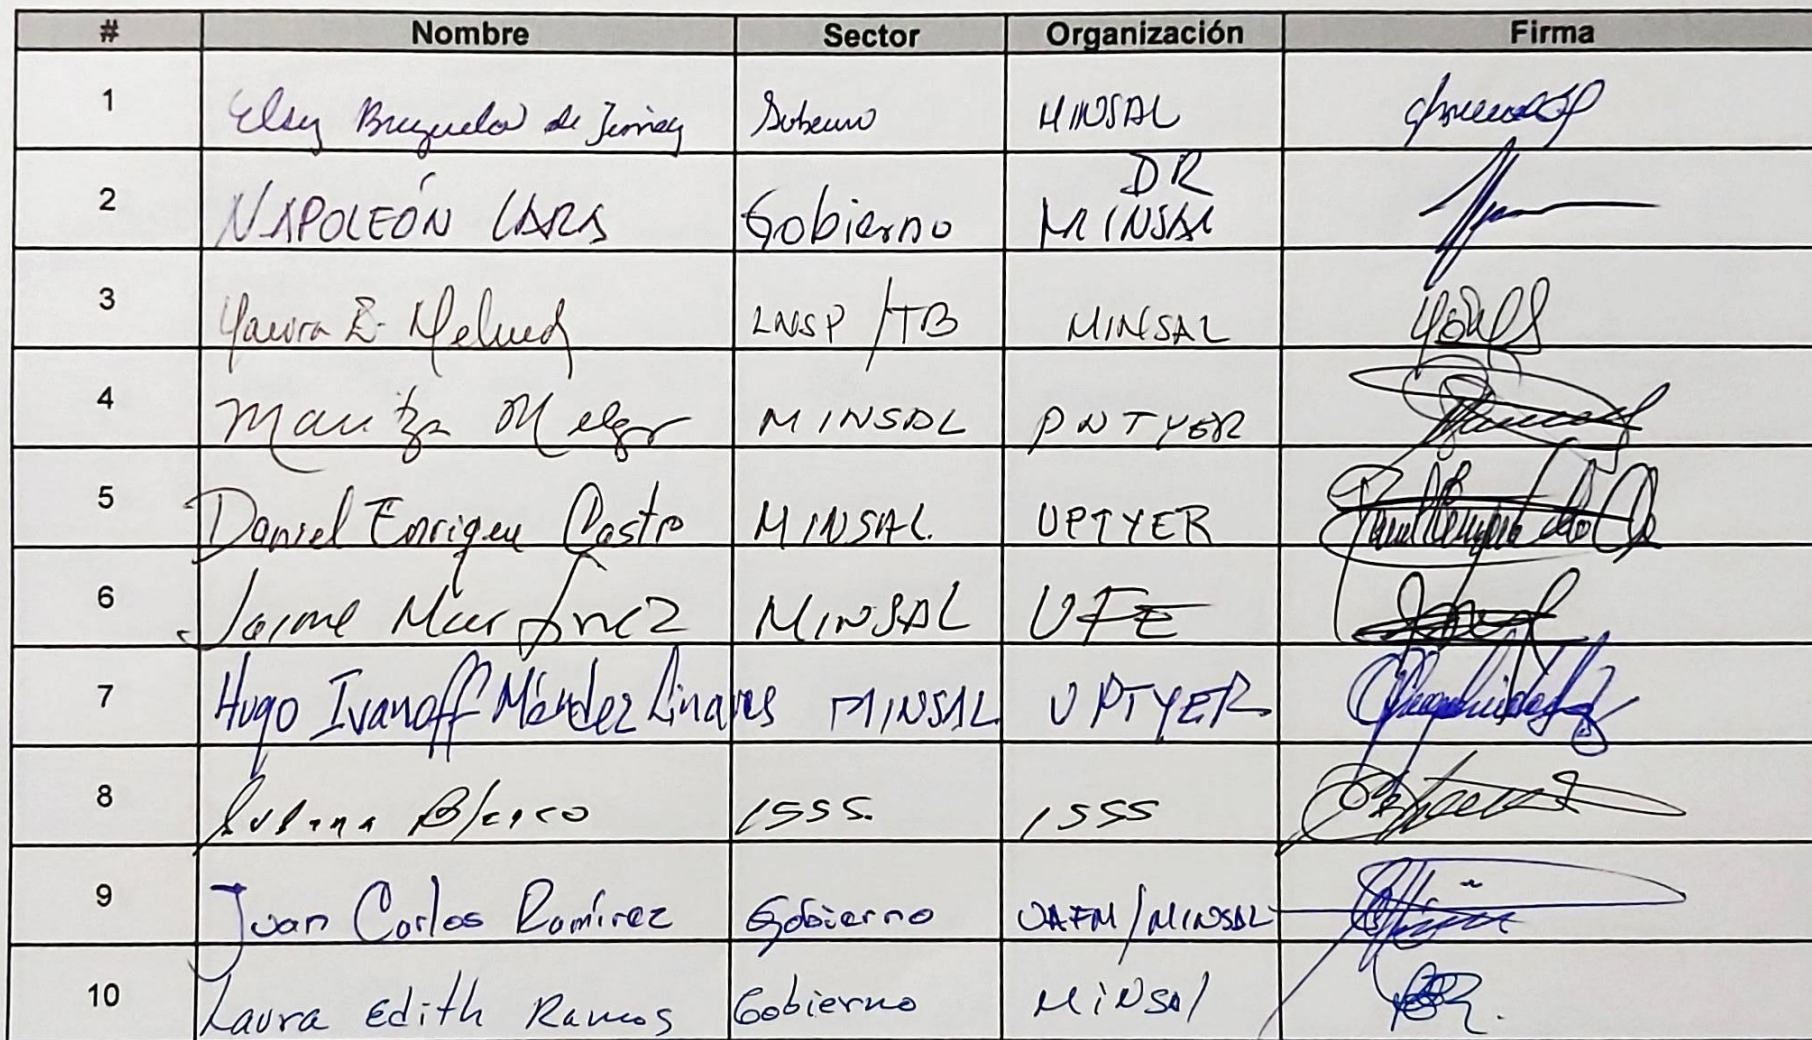 # Nombre Sector Organización Firma
1 Elsy Brizuela de Jiménez Gobierno MINSAL
DR
2 NAPOLEÓN LARA Gobierno MINSAL
3 E. INSP / TB MINSAL
4 Maritza Melgar MINSAL PNTYER
5 Daniel Enrique Castro MINSAL. UPTYER
6 Jaime Martínez MINSAL UFE
7 Hugo Ivanoff Méndez Linares MINSAL UPTYER
8 Susana Blanco ISSS. ISSS
9 Juan Carlos Ramírez Gobierno UAFM/MINSAL
10 Laura Edith Ramos Gobierno MINSAl